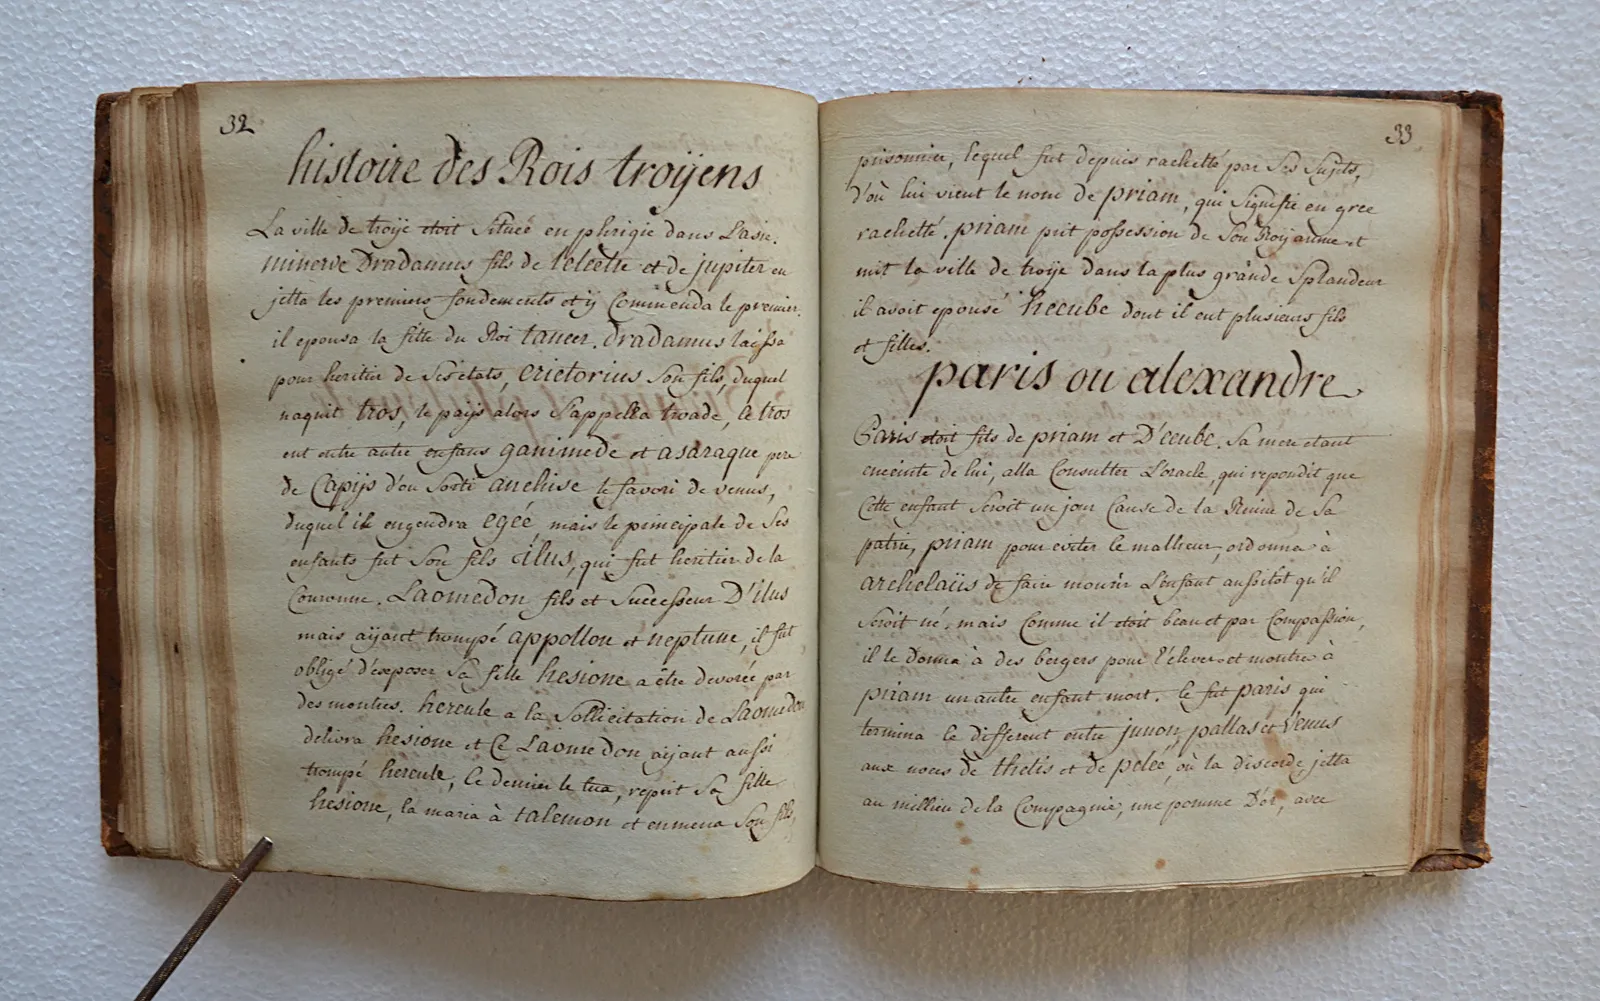 32
histoire des Rois troÿens
La ville de troÿe etoit Située en phrigie dans L'asie.
minerve Dradamus fils de l'elèctre et de jupiter en
jetta les premiers fondements et ÿ Commenda le premier.
il epousa la fille du Roi tancer. dradamus laissa
pour heritier de Ses etats, erictorius Son fils, duquel
naquit tros, le paÿs alors S'appella troade, Ce tros
eut entre autre enfans ganimede et asaraque pere
de Capÿs d'ou Sorti anchise le favori de venus,
duquel il engendra egée mais le principale de Ses
enfants fut Son fils ilus, qui fut heritier de la
Couronne. Laomedon fils et Successeur D'ilus
mais aÿant trompé appollon et neptune, il fut
obligé d'exposer Sa fille hesione a être devorée par
des montres. hercule a la Sollicitation de Laomedon
delivra hesione et Ce Laomedon aÿant aussi
trompé hercule, Ce dernier le tua, reprit Sa fille
hesione, la maria à talemon et enmena Son fils,
33
prisonnier, lequel fut depuis rachetté par Ses Sujets,
d'où lui vient le nom de priam, qui Signifie en grec
rachetté. priam prit possession de Son Roÿaume et
mit la ville de troÿe dans la plus grande Splandeur
il avoit epousé hecube dont il eut plusieurs fils
et filles.
paris ou alexandre
Paris etoit fils de priam et D'ecube. Sa mere etant
enceinte de lui, alla Consulter L'oracle, qui repondit que
Cette enfant Seroit un jour Cause de la Ruine de Sa
patrie, priam pour eviter le malheur, ordonna à
archelaüs de faire mourir L'enfant aussitot qu'il
Seroit né, mais Comme il etoit beau et par Compassion,
il le donna à des bergers pour l'élever et montre à
priam un autre enfant mort. Ce fut paris qui
termina le different entre junon, pallas et Venus
aux noces de thetis et de pelée, où la discorde jetta
au millieu de la Compagnie, une pomme D'or, avec